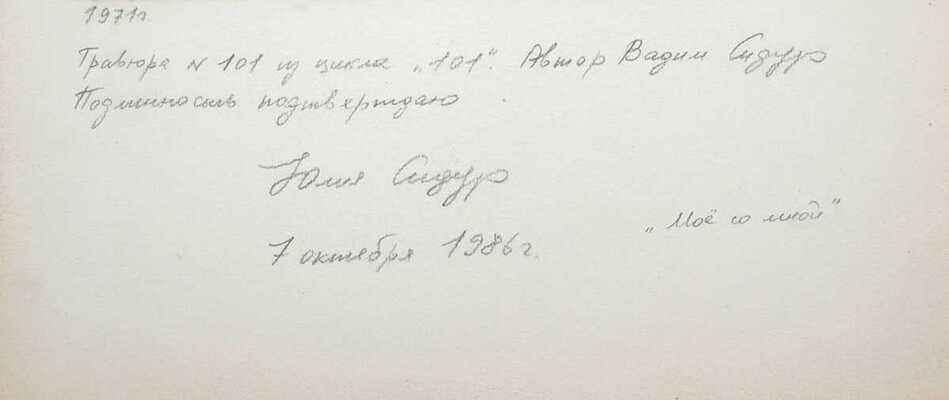 1971г.
Гравюра № 101 из цикла „101“. Автор Вадим Сидур
Подлинность подтверждаю
Юлия Сидур
7 октября 1986г.
„Моё со мной“